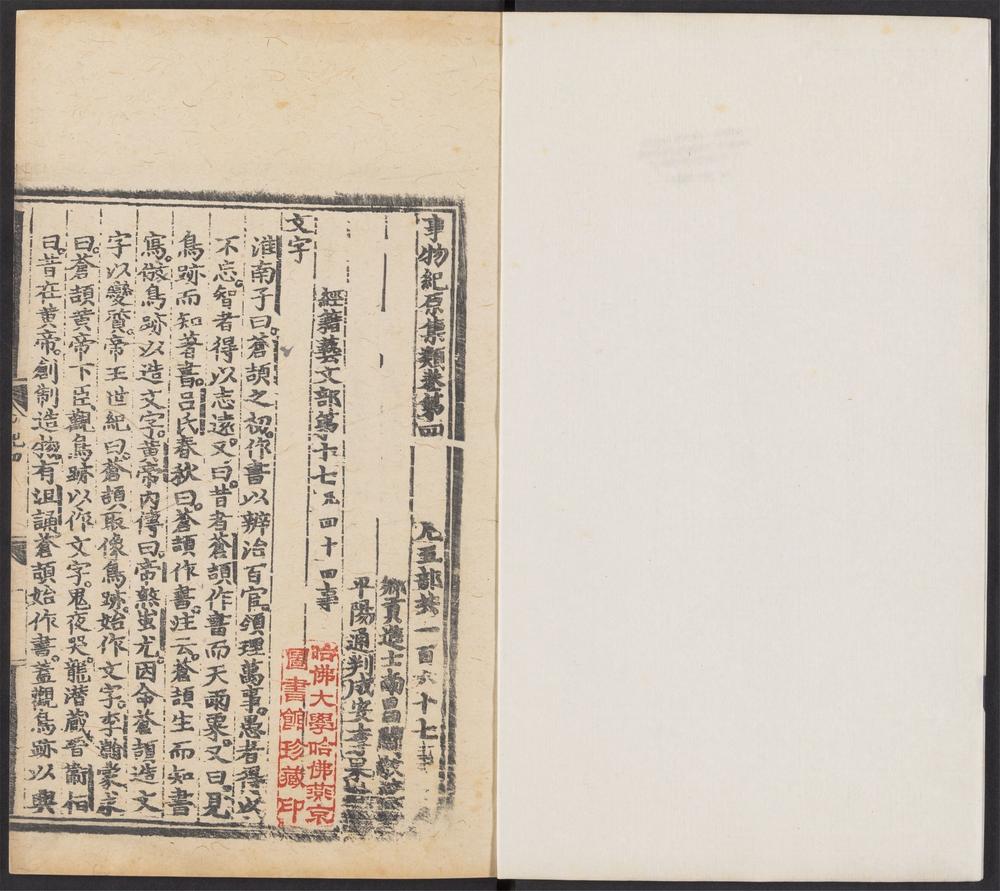 事物紀原集類卷第四
凡五部共一百六十七事
鄉貢進士南昌閻敬
平陽通判成安李果
經籍藝文部第十七凡四十四事
文字
淮南子曰蒼頡之初作書以辨治百官領理萬事愚者得以
不忘智者得以志遠又曰昔者蒼頡作書而天雨粟又曰見
鳥跡而知著書呂氏春秋曰蒼頡作書注云蒼頡生而知書
寫倣鳥跡以造文字黃帝內傳曰帝煞蚩尤因命蒼頡造文
字以變質帝王世紀曰蒼頡取像鳥跡始作文字李瀚蒙求
曰蒼頡黃帝下臣觀鳥跡以作文字鬼夜哭龍潜蔵晉衛恒
曰昔在黄帝創制造物有沮誦蒼頡始作書蓋觀鳥跡以興
哈佛大學哈佛燕京
圖書館珍藏印